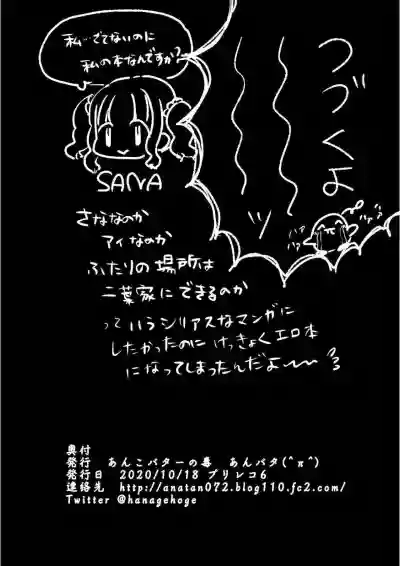 つづくよ
ッ
私…でてないのに
私の本なんですか?
SANA
ハァ
ハァ
さななのか
アイなのか
ふたりの場所は
二葉家にできるのか
っていうシリアスなマンガに
したかったのに けっきょくエロ本
になってしまったんだよ〜〜
奥付
発行 あんこバターの毒 あんバタ(^π^)
発行日 2020/10/18 プリレコ6
連絡先 http://anatan072.blog110.fc2.com/
Twitter @hanagehoge